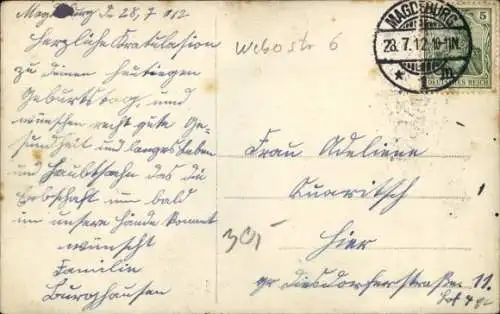 Magdeburg D. 28,7 012
Herzliche Kratulasion
zu deinen heutiegen
Geburtstag, und
wünschen recht gute Ge-
sundheit und langes Leben
und Haubtsahn das die
Erbschaft um bald
in unsere Hände kommt
wünscht
Familie
Burghausen
Webostr 6
MAGDEBURG
28.7.12.10-11N.
* 1 m
5
DEUTSCHES REICH
Frau Adeliene
Kuaritsch
Hier
30,-
gr Diesdorferstraße 11.
Hof